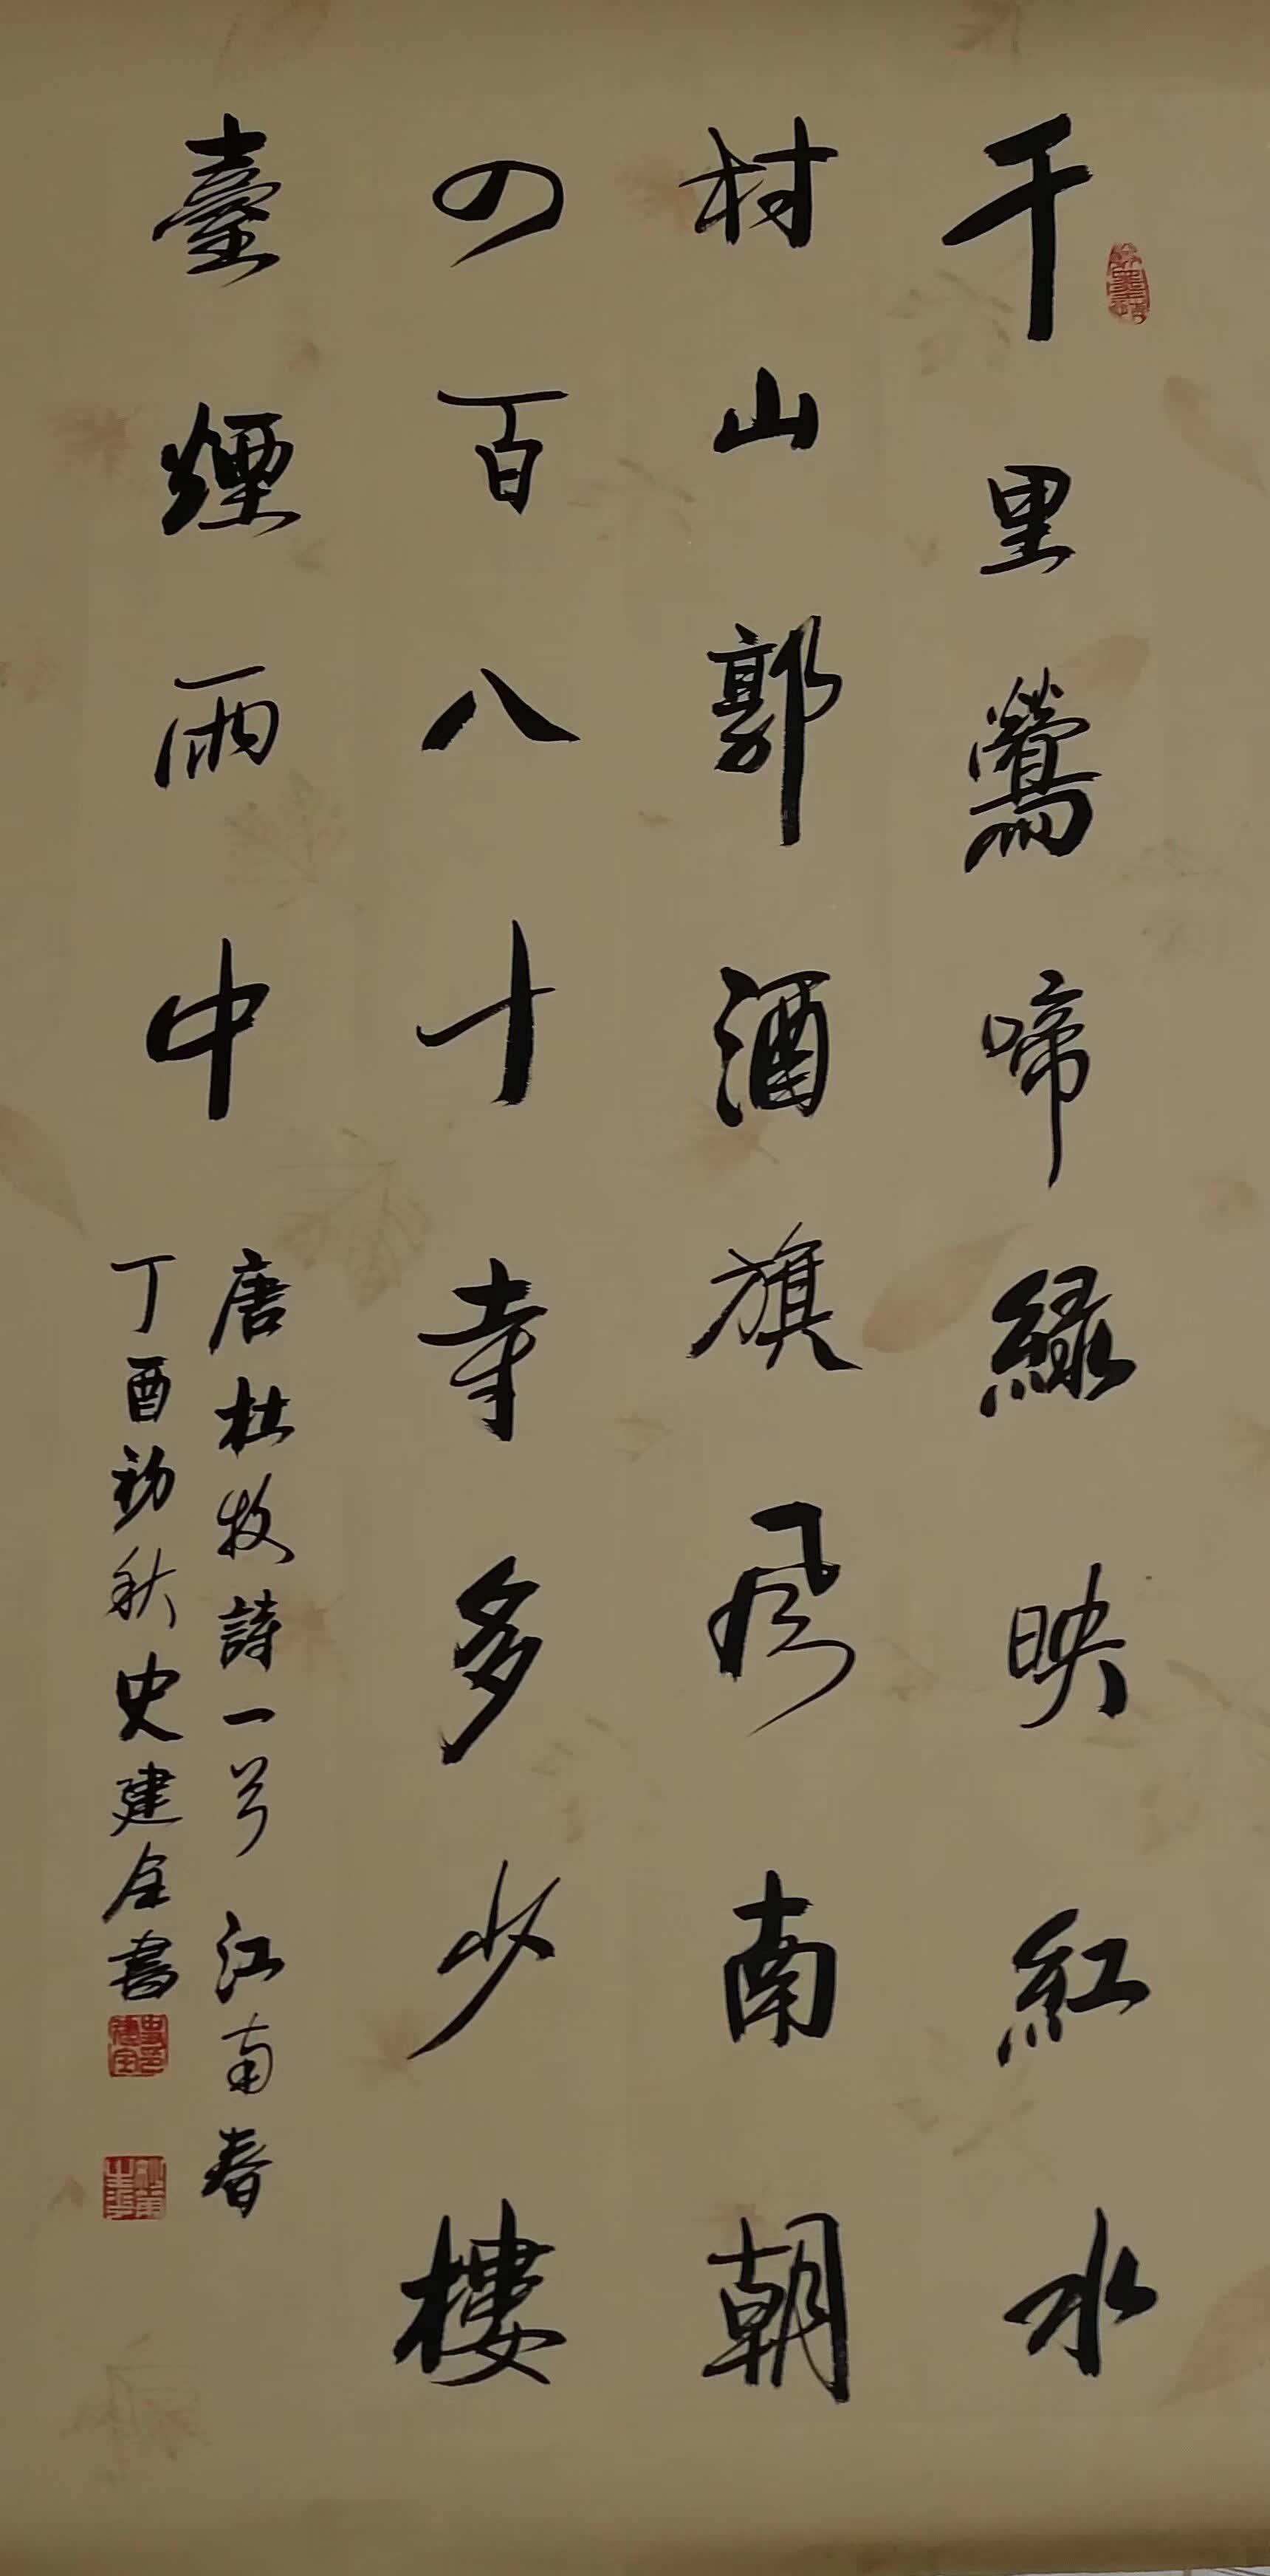 千里鶯啼緑映紅水
村山郭酒旗风南朝
四百八十寺多少樓
臺煙雨中
唐杜牧詩一首 江南春
丁酉初秋史建全書